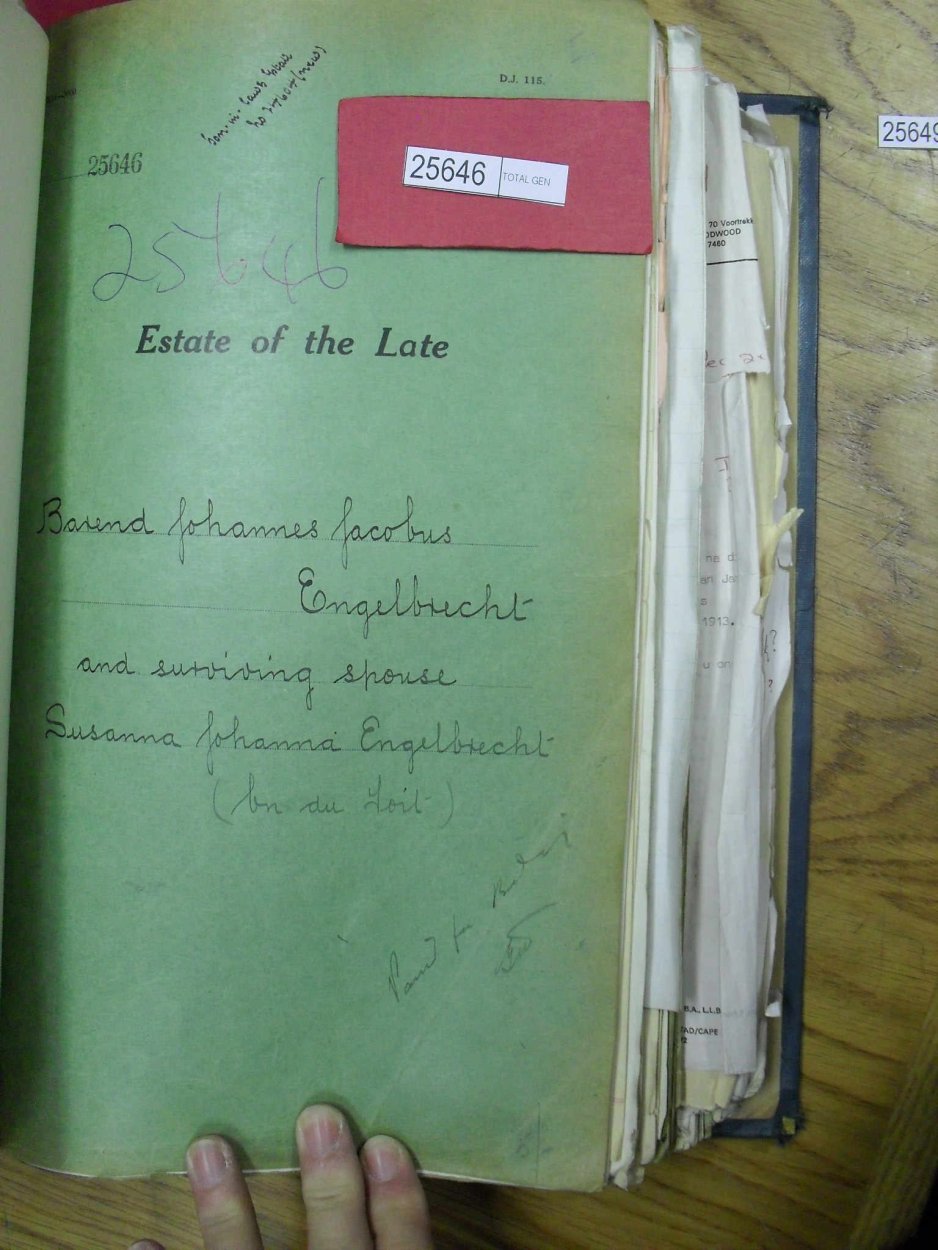 D.J. 115.
Son-in-law's Estate
No 27604 (new)
25646
25646 TOTAL GEN
25649
25646
Estate of the Late
Barend Johannes Jacobus
Engelbrecht
and surviving spouse
Susanna Johanna Engelbrecht
(bn du Toit)
70 Voortrekk
ODWOOD
7460
Dec
na d
an Ja
s
1913.
u on
?
?
B.A., L.L.B
TAD/CAPE